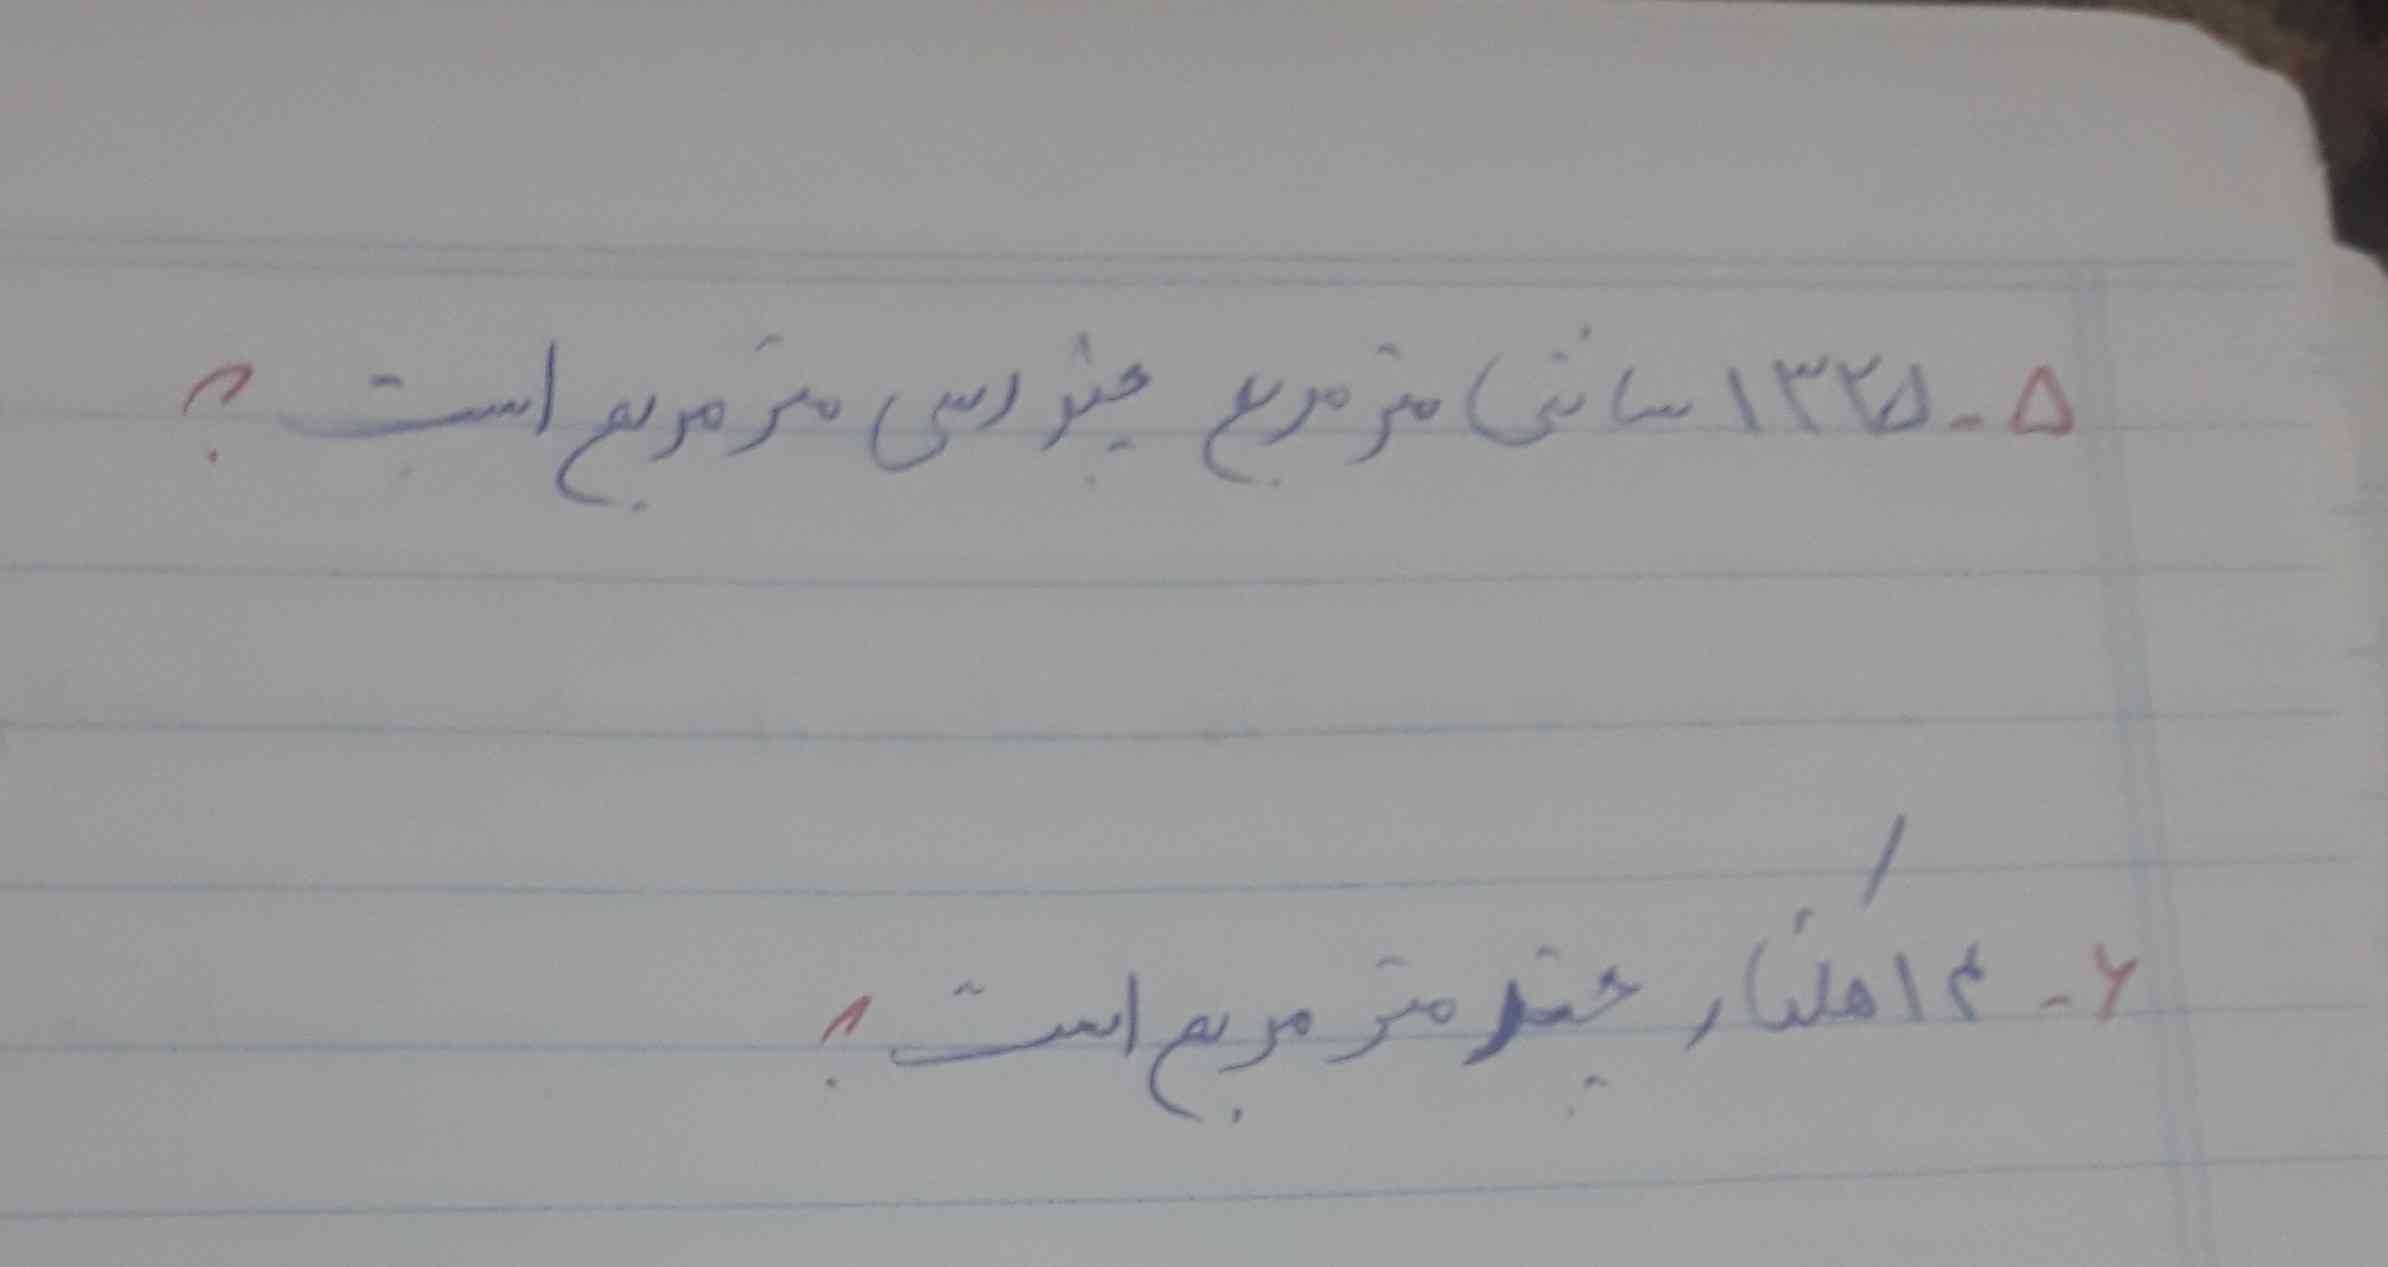 ۵- ۱۳۲۵ سانتی متر مربع چند دسی متر مربع است ؟
۶- ۱۴ هکتار چند متر مربع است ؟